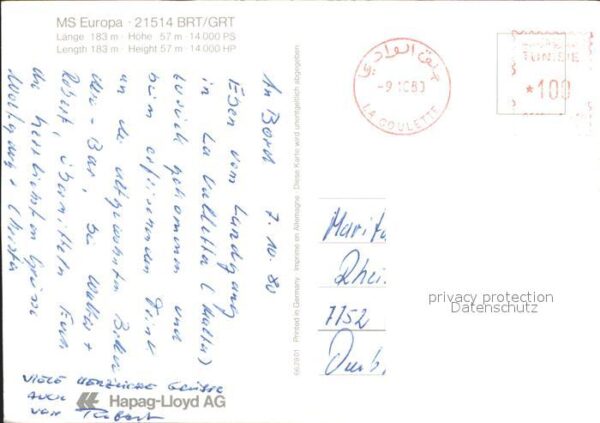 MS Europa · 21514 BRT/GRT
Länge 183 m · Höhe 57 m · 14 000 PS
Length 183 m · Height 57 m · 14 000 HP
An Bord 7.10.80
Eben vom Landgang
in La Valletta (Malta)
zurück gekommen und
beim erfrischenden Drink
an der altgewohnten
der - Bar, bei Walter +
Robert, übermitteln Euch
die herzlichsten Grüsse
Wolfgang + Christa
VIELE HERZLICHE GRÜSSE
AUCH
VON Robert
Hapag-Lloyd AG
662901 Printed in Germany Imprimé en Allemagne Diese Karte wird unentgeltlich abgegeben
حلق الوادي
-9 10 80
LA GOULETTE
TUNISIE
*100
Marita
Rhei
7752
privacy protection
Datenschutz